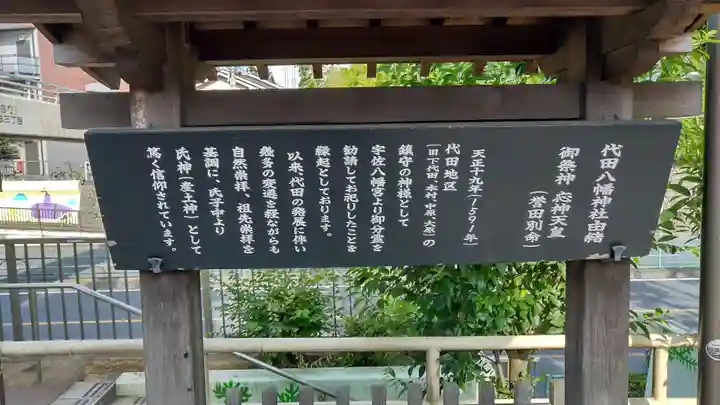 代田八幡神社由緒
御祭神 応神天皇
(誉田別命)
天正十九年(1591年)
代田地区
(旧下代田、本村、中原、大原)の
鎮守の神様として
宇佐八幡宮より御分霊を
勧請してお祀りしたことを
縁起としております。
以来、代田の発展に伴い
幾多の変遷を経ながらも
自然崇拝、祖先崇拝を
基調に、氏子中より
氏神(産土神)として
篤く信仰されています。
三丁目